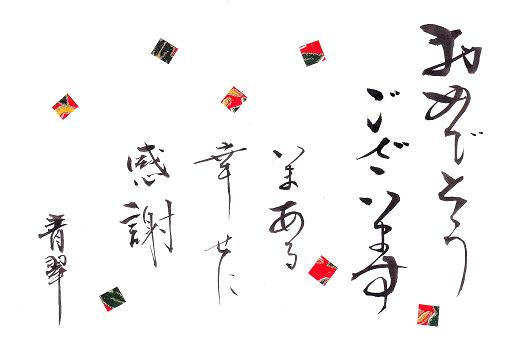 おめでとう
ございます
いまある
幸せに
感謝
青翠